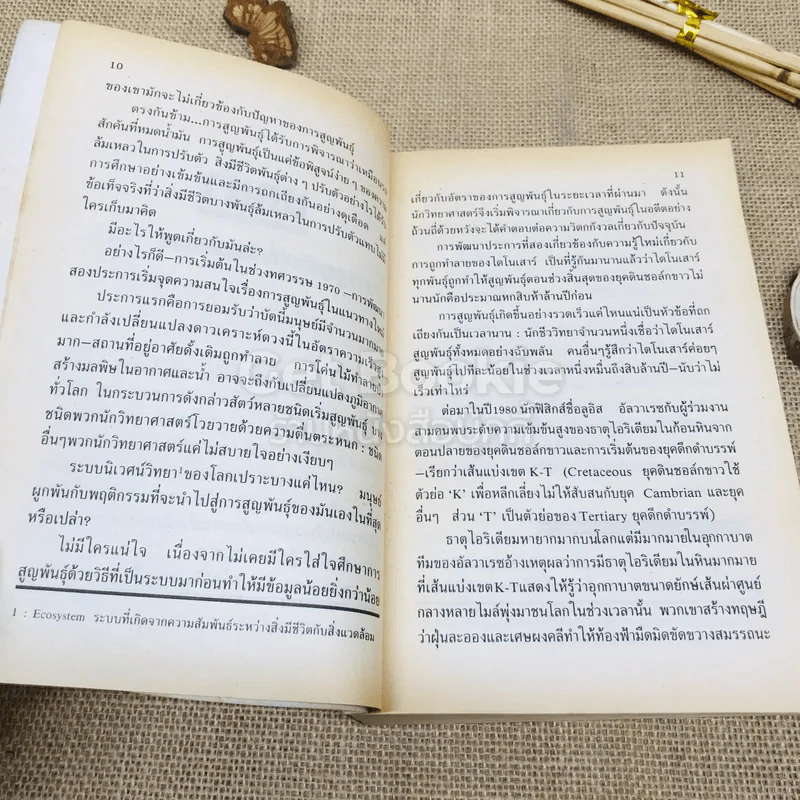 10
ของเขามักจะไม่เกี่ยวข้องกับปัญหาของการสูญพันธุ์
ตรงกันข้าม...การสูญพันธุ์ได้รับการพิจารณาว่าเหมือนรถ
สักคันที่หมดน้ำมัน การสูญพันธุ์เป็นแค่ข้อพิสูจน์ง่าย ๆ ของความ
ล้มเหลวในการปรับตัว สิ่งมีชีวิตพันธุ์ต่าง ๆ ปรับตัวอย่างไรได้รับ
การศึกษาอย่างเข้มข้นและมีการถกเถียงกันอย่างดุเดือด แต่
ข้อเท็จจริงที่ว่าสิ่งมีชีวิตบางพันธุ์ล้มเหลวในการปรับตัวแทบไม่มี
ใครเก็บมาคิด
มีอะไรให้พูดเกี่ยวกับมันล่ะ?
อย่างไรก็ดี—การเริ่มต้นในช่วงทศวรรษ 1970—การพัฒนา
สองประการเริ่มจุดความสนใจเรื่องการสูญพันธุ์ในแนวทางใหม่
ประการแรกคือการยอมรับว่าบัดนี้มนุษย์มีจำนวนมากมาย
และกำลังเปลี่ยนแปลงดาวเคราะห์ดวงนี้ในอัตราความเร็วสูง
มาก—สถานที่อยู่อาศัยดั้งเดิมถูกทำลาย การโค่นไม้ทำลายป่า
สร้างมลพิษในอากาศและน้ำ อาจจะถึงกับเปลี่ยนแปลงภูมิอากาศ
ทั่วโลก ในกระบวนการดังกล่าวสัตว์หลายชนิดเริ่มสูญพันธุ์ บาง
ชนิดพวกนักวิทยาศาสตร์โวยวายด้วยความตื่นตระหนก : ชนิด
อื่นๆพวกนักวิทยาศาสตร์แค่ไม่สบายใจอย่างเงียบๆ
ระบบนิเวศน์วิทยา1ของโลกเปราะบางแค่ไหน? มนุษย์
ผูกพันกับพฤติกรรมที่จะนำไปสู่การสูญพันธุ์ของมันเองในที่สุด
หรือเปล่า?
ไม่มีใครแน่ใจ เนื่องจากไม่เคยมีใครใส่ใจศึกษาการ
สูญพันธุ์ด้วยวิธีที่เป็นระบบมาก่อนทำให้มีข้อมูลน้อยยิ่งกว่าน้อย
1 : Ecosystem ระบบที่เกิดจากความสัมพันธ์ระหว่างสิ่งมีชีวิตกับสิ่งแวดล้อม
11
เกี่ยวกับอัตราของการสูญพันธุ์ในระยะเวลาที่ผ่านมา ดังนั้น
นักวิทยาศาสตร์จึงเริ่มพิจารณาเกี่ยวกับการสูญพันธุ์ในอดีตอย่าง
ถ้วนถี่ด้วยหวังจะได้คำตอบต่อความวิตกกังวลเกี่ยวกับปัจจุบัน
การพัฒนาประการที่สองเกี่ยวข้องกับความรู้ใหม่เกี่ยวกับ
การถูกทำลายของไดโนเสาร์ เป็นที่รู้กันมานานแล้วว่าไดโนเสาร์
ทุกพันธุ์ถูกทำให้สูญพันธุ์ตอนช่วงสิ้นสุดของยุคดินชอล์กขาวไม่
นานนักคือประมาณหกสิบห้าล้านปีก่อน
การสูญพันธุ์เกิดขึ้นอย่างรวดเร็วแค่ไหนแน่เป็นหัวข้อที่ถก
เถียงกันเป็นเวลานาน : นักชีววิทยาจำนวนหนึ่งเชื่อว่าไดโนเสาร์
สูญพันธุ์ทั้งหมดอย่างฉับพลัน คนอื่นๆรู้สึกว่าไดโนเสาร์ค่อยๆ
สูญพันธุ์ไปทีละน้อยในช่วงเวลาหนึ่งหมื่นถึงสิบล้านปี—นับว่าไม่
เร็วเท่าไหร่
ต่อมาในปี 1980 นักฟิสิกส์ชื่อลูอิส อัลวาเรซกับผู้ร่วมงาน
สามคนพบระดับความเข้มข้นสูงของธาตุไอริเดียมในก้อนหินจาก
ตอนปลายของยุคดินชอล์กขาวและการเริ่มต้นของยุคดึกดำบรรพ์
—เรียกว่าเส้นแบ่งเขต K-T (Cretaceous ยุคดินชอล์กขาวใช้
ตัวย่อ ‘K’ เพื่อหลีกเลี่ยงไม่ให้สับสนกับยุค Cambrian และยุค
อื่นๆ ส่วน ‘T’ เป็นตัวย่อของ Tertiary ยุคดึกดำบรรพ์)
ธาตุไอริเดียมหายากมากบนโลกแต่มีมากมายในอุกกาบาต
ทีมของอัลวาเรซอ้างเหตุผลว่าการมีธาตุไอริเดียมในหินมากมาย
ที่เส้นแบ่งเขต K-T แสดงให้รู้ว่าอุกกาบาตขนาดยักษ์เส้นผ่าศูนย์
กลางหลายไมล์พุ่งมาชนโลกในช่วงเวลานั้น พวกเขาสร้างทฤษฎี
ว่าฝุ่นละอองและเศษผงคลีทำให้ท้องฟ้ามืดมิดขัดขวางสมรรถนะ
Get Bookie